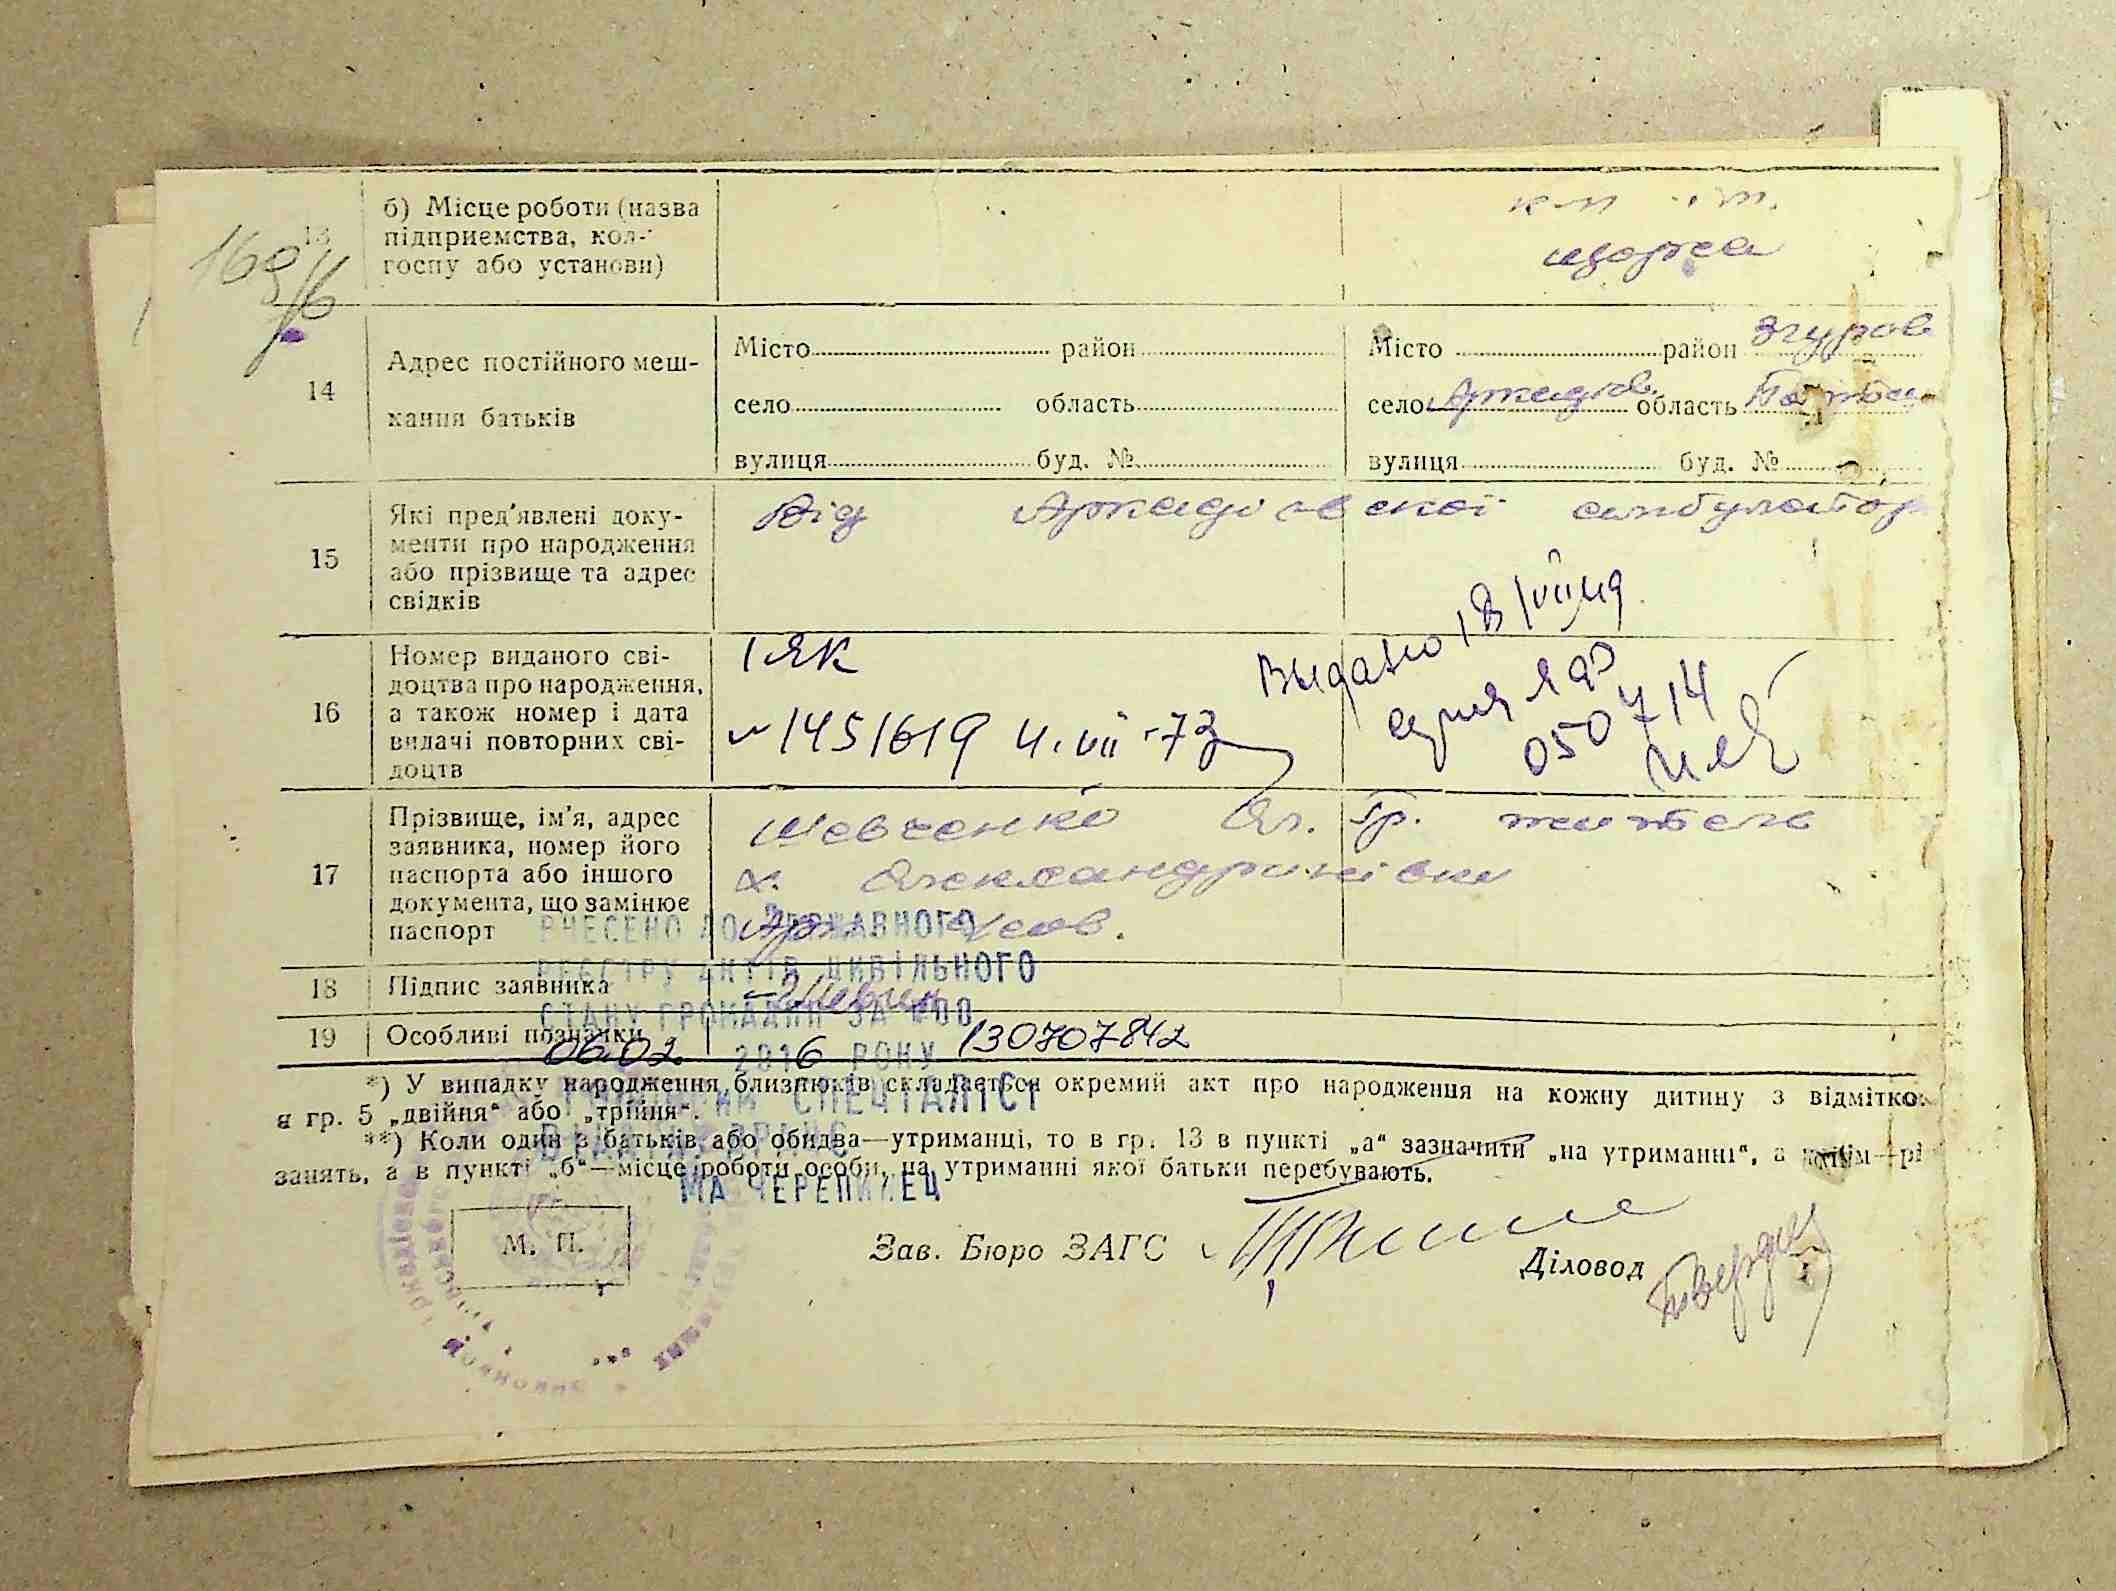 169/6
13
б) Місце роботи (назва
підприємства, кол-
госпу або установи)
щорса
14
Адрес постійного меш-
кання батьків
Місто район
село область
вулиця буд. №
Місто район Згуров
село Аркадіов. область Полтав
вулиця буд. №
15
Які пред'явлені доку-
менти про народження
або прізвище та адрес
свідків
Від Аркадіовскої амбулатор
16
Номер виданого сві-
доцтва про народження,
а також номер і дата
видачі повторних сві-
доцтв
I ЯК
№ 1451619 4.VII-73
Выдано 18/VII 49
050714
17
Прізвище, ім'я, адрес
заявника, номер його
паспорта або іншого
документа, що замінює
паспорт
Шевченко Ол. Гр. житель
х. Олександринівки
18
Підпис заявника
19
Особливі позначки
ВНЕСЕНО ДО ДЕРЖАВНОГО
РЕЄСТРУ АКТІВ ЦИВІЛЬНОГО
СТАНУ ГРОМАДЯН ЗА №00 130707842
06.02. 2016 РОКУ
ГОЛОВНИЙ СПЕЦІАЛІСТ
МА ЧЕРЕПИНЕЦ
*) У випадку народження близнюків складається окремий акт про народження на кожну дитину з відміткою
я гр. 5 „двійня“ або „трійня“.
**) Коли один з батьків або обидва—утриманці, то в гр. 13 в пункті „а“ зазначити „на утриманні“, а
занять, а в пункті „б“—місце роботи особи, на утриманні якої батьки перебувають.
М. П.
Зав. Бюро ЗАГС
Діловод